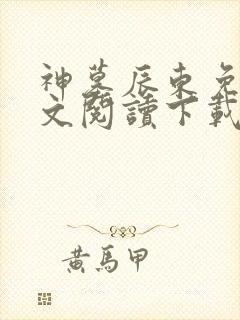 神墓辰東免
文閱讀下載
黃馬甲